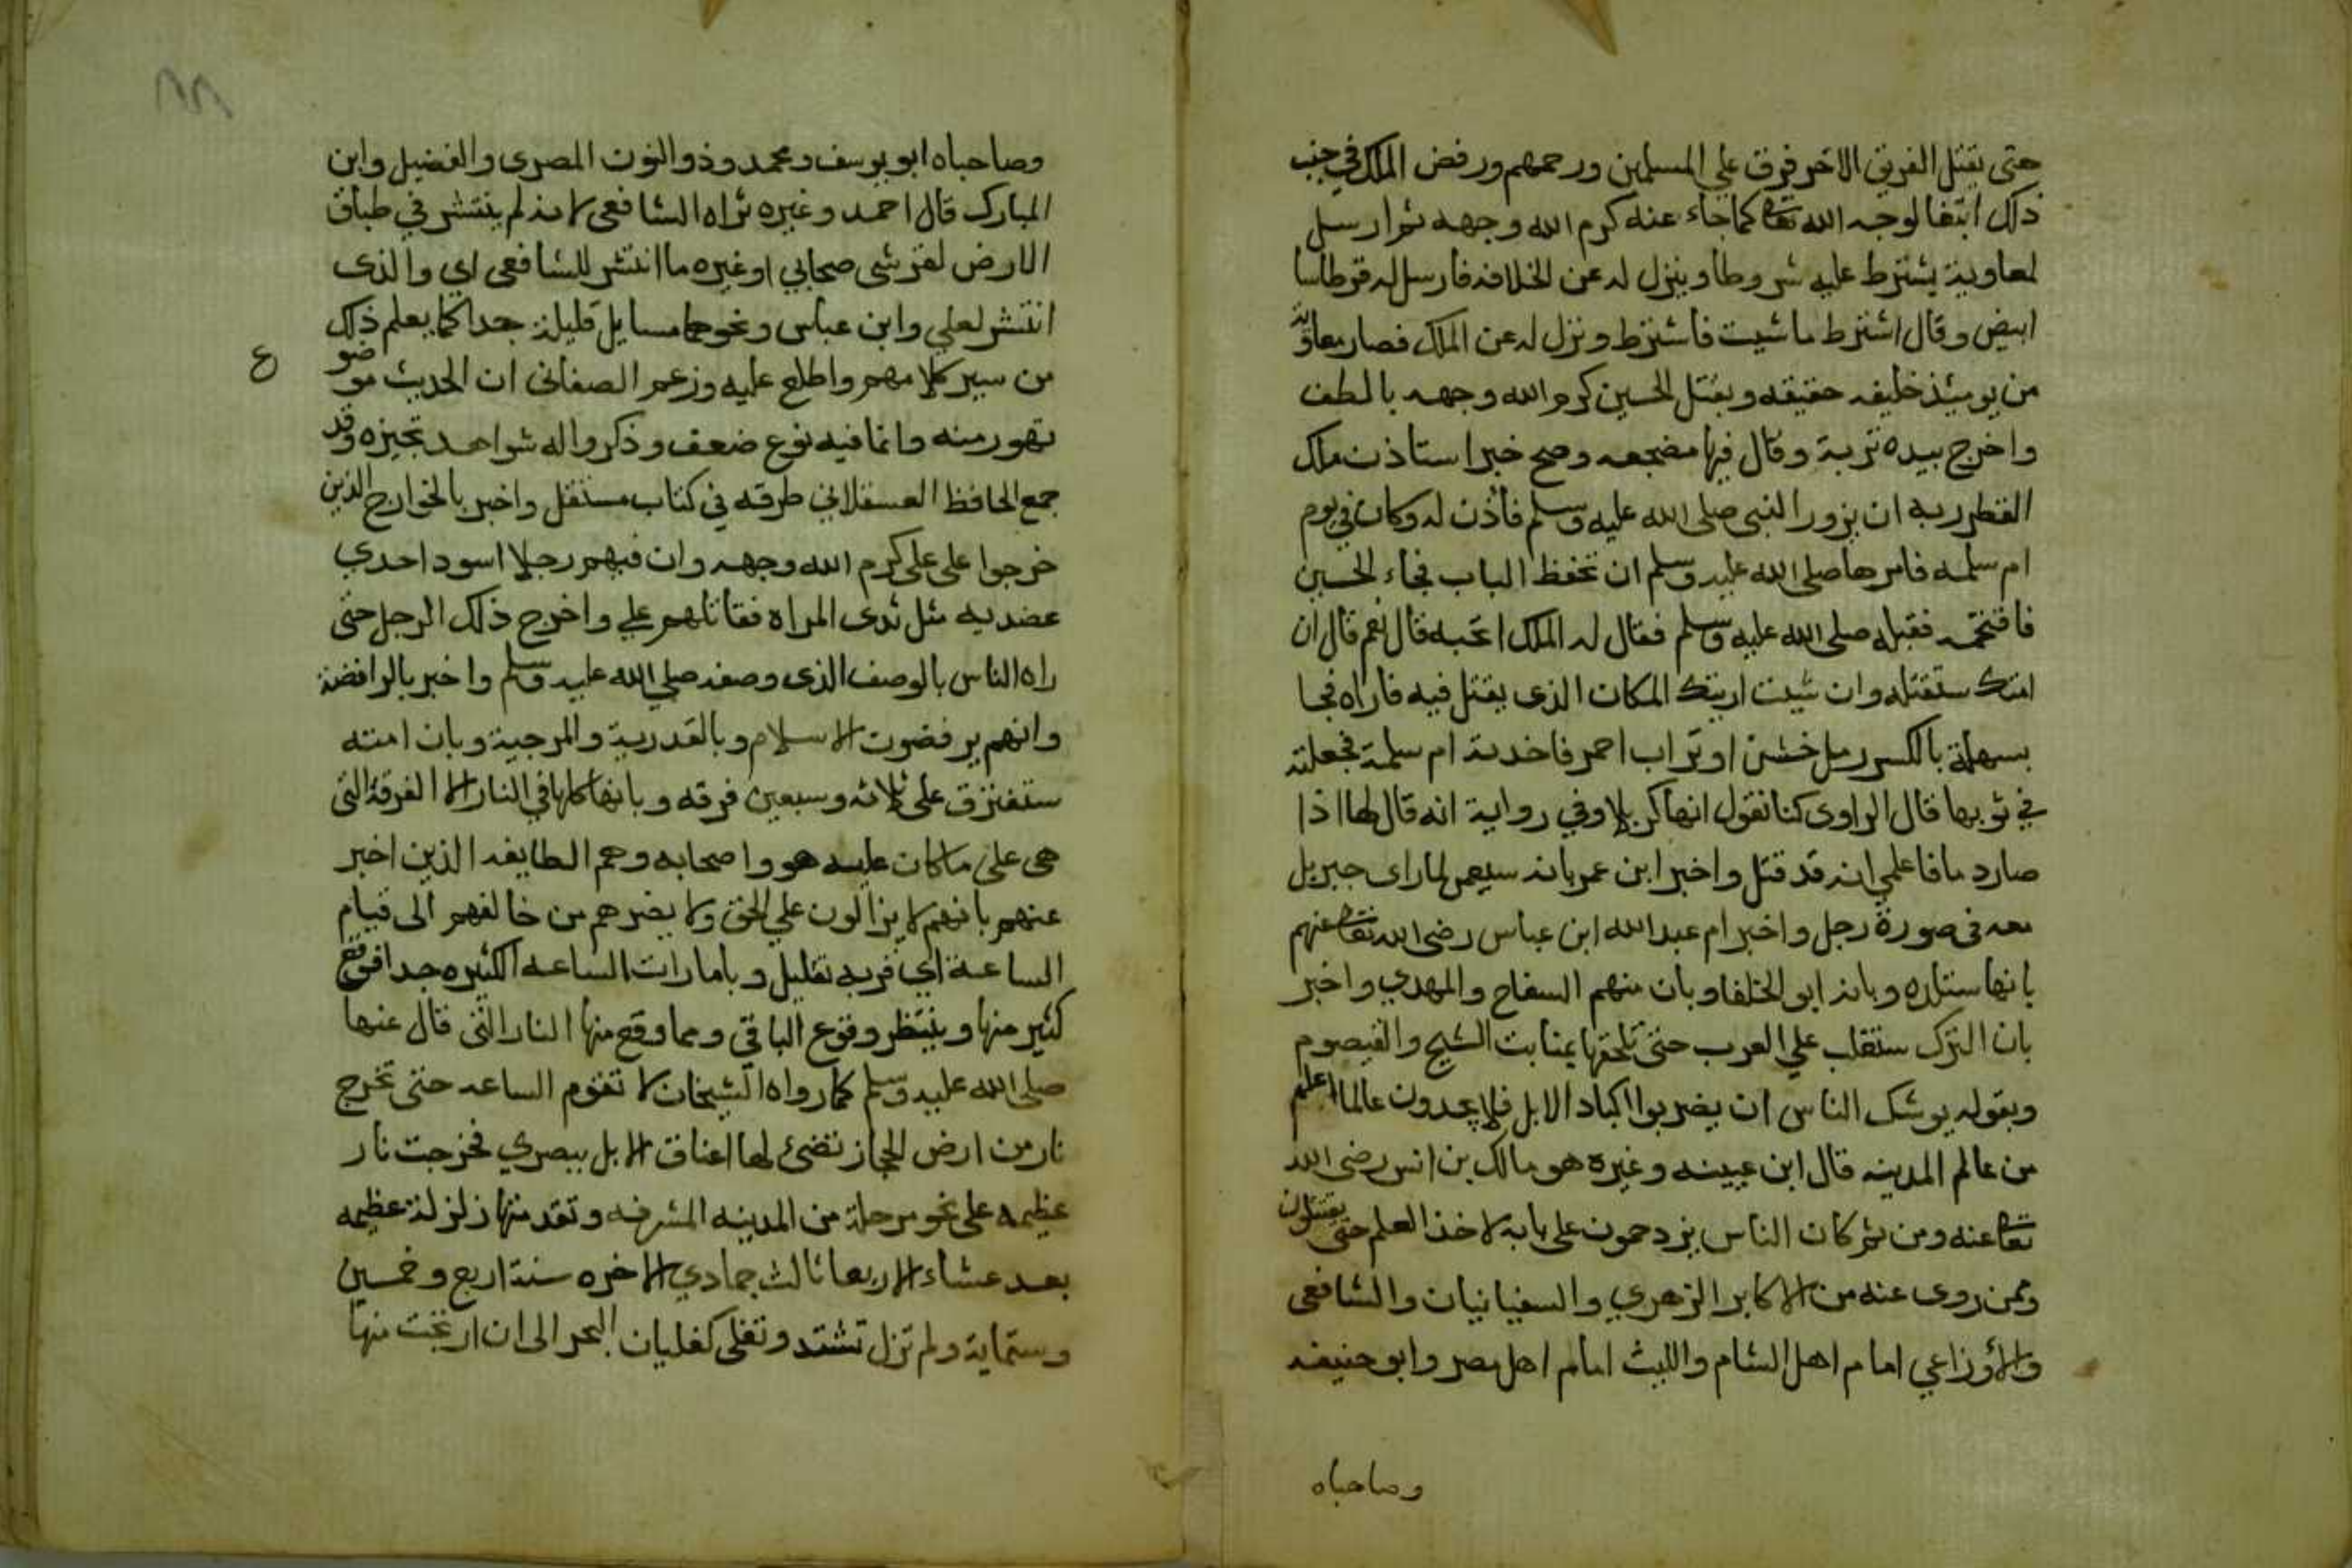 حتى يقتل الفريق الاخر فرق علي المسلمين ورحمهم ورفض الملك في جنب
ذلك ابتغا لوجه الله تعا كما جاء عنه كرم الله وجهه ثم ارسل
لمعاوية يشترط عليه شروطا وينزل له عن الخلافه فارسل له قرطاسا
ابيض وقال اشترط ما شيت فاشترط ونزل له عن الملك فصار معاوية
من يوميئذ خليفه حقيقه وبقتل الحسين كرم الله وجهه بالطف
واخرج بيده تربة وقال فيها مضجعه وصح خبر استاذن ملك
القطر ربه ان يزور النبي صلى الله عليه وسلم فاذن له وكان في يوم
ام سلمه فامرها صلى الله عليه وسلم ان تحفظ الباب فجاء الحسين
فاقتحمه فقبله صلى الله عليه وسلم فقال له الملك اتحبه قال نعم قال ان
امتك ستقتله وان شيت اريتك المكان الذى يقتل فيه فاراه فجا
بسهلة بالكسر رمل خشن او تراب احمر فاخدته ام سلمة فجعلته
في ثوبها قال الراوى كنا نقول انها كربلا وفي رواية انه قال لها اذا
صار دما فاعلمي انه قد قتل واخبر ابن عمر بانه سيعمى لما راى جبريل
معه في صورة رجل واخبر ام عبد الله ابن عباس رضى الله تعا عنهم
بانها ستلده وبانه ابو الخلفا وبان منهم السفاح والمهدي واخبر
بان الترك ستقلب علي العرب حتى تلحقها بمنابت الشيح والقيصوم
وبقوله يوشك الناس ان يضربوا اكباد الابل فلا يجدون عالما اعلم
من عالم المدينه قال ابن عيينه وغيره هو مالك بن انس رضى الله
تعا عنه ومن ثم كان الناس يزدحمون على بابه لاخذ العلم حتى يقتتلون
وممن روى عنه من الاكابر الزهري والسفيانيان والشافعى
والأوزاعي امام اهل الشام والليث امام اهل مصر وابو حنيفه
وصاحباه
٨٨
وصاحباه ابو يوسف ومحمد وذو النون المصرى والفضيل وابن
المبارك قال احمد وغيره نراه الشافعى لانه لم ينتشر في طباق
الارض لقرشى صحابي او غيره ما انتشر للشافعى اي والذى
انتشر لعلي وابن عباس ونحوهما مسايل قليلة جدا كما يعلم ذلك
من سبر كلامهم واطلع عليه وزعم الصغانى ان الحديث موضو
ع
تهور منه وانما فيه نوع ضعف وذكروا له شواهد تجيزه وقد
جمع الحافظ العسقلاني طرقه في كتاب مستقل واخبر بالخوارج الذين
خرجوا على على كرم الله وجهه وان فيهم رجلا اسود احدي
عضديه مثل ثدى المراه فقاتلهم علي واخرج ذلك الرجل حتى
راه الناس بالوصف الذى وصفه صلي الله عليه وسلم واخبر بالرافضة
وانهم يرفضون الاسلام وبالقدرية والمرجية وبان امته
ستفترق على ثلاثه وسبعين فرقه وبانها كلها في النار الا الفرقة التى
هى على ما كان عليه هو واصحابه وهم الطايفه الذين اخبر
عنهم بانهم لا يزالون علي الحق ولا يضرهم من خالفهم الى قيام
الساعة اي قربه بقليل وبامارات الساعه الكثيره جدا فوقع
كثير منها وينتظر وقوع الباقي ومما وقع منها النار التى قال عنها
صلى الله عليه وسلم كما رواه الشيخان لا تقوم الساعه حتى تخرج
نار من ارض الحجاز تضئ لها اعناق الابل ببصري فخرجت نار
عظيمه على نحو مرحلة من المدينه المشرفه وتقدمتها زلزلة عظيمه
بعد عشاء الاربعا ثالث جمادي الاخره سنة اربع وخمسين
وستماية ولم تزل تشتد وتغلى كغليان البحر الى ان ارتجت منها